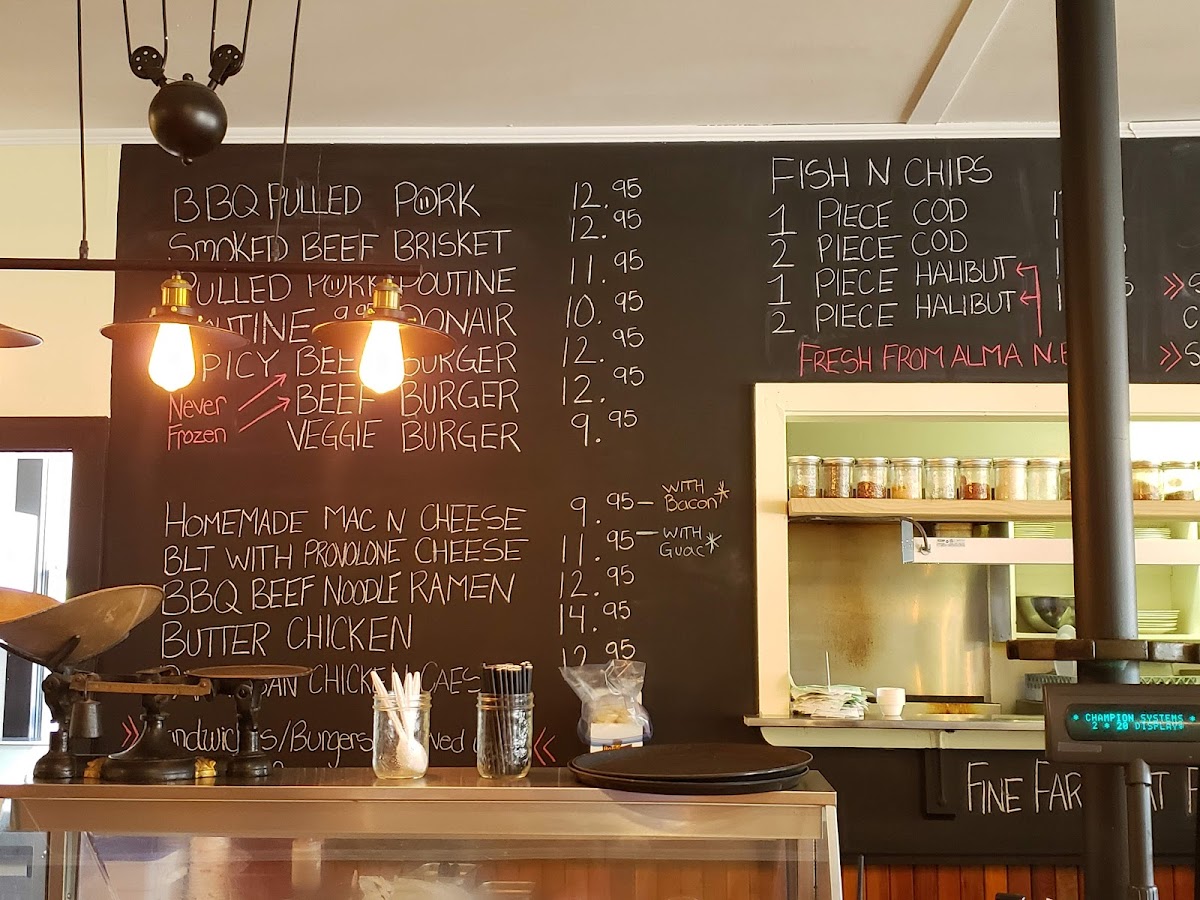 BBQ PULLED PORK 12.95
SMOKED BEEF BRISKET 12.95
PULLED PORK POUTINE 11.95
9.95 DONAIR 10.95
SPICY BEEF BURGER 12.95
BEEF BURGER 12.95
Never
Frozen
VEGGIE BURGER 9.95
HOMEMADE MAC N CHEESE 9.95 – WITH Bacon*
BLT WITH PROVOLONE CHEESE 11.95 – WITH Guac*
BBQ BEEF NOODLE RAMEN 12.95
BUTTER CHICKEN 14.95
CHICKEN 12.95
FISH N CHIPS
1 PIECE COD
2 PIECE COD
1 PIECE HALIBUT
2 PIECE HALIBUT
FRESH FROM ALMA N.B
FINE
* CHAMPION SYSTEMS *
2 * 20 DISPLAY